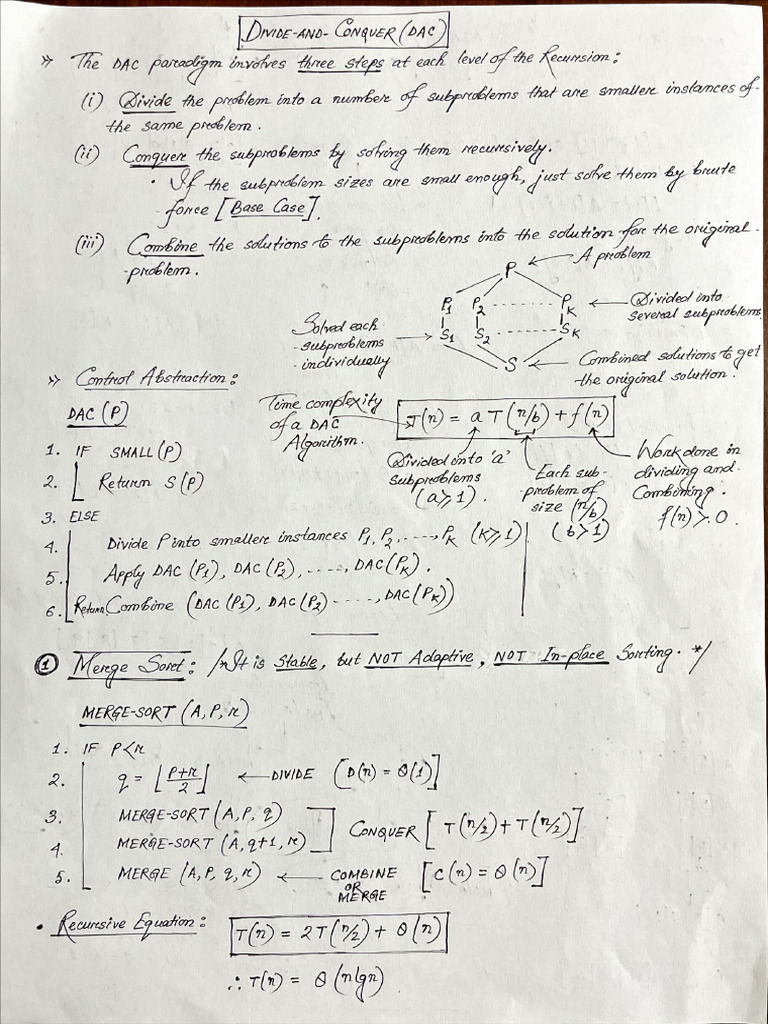 DIVIDE-AND-CONQUER (DAC)
» The DAC paradigm involves three steps at each level of the Recursion:
(i) Divide the problem into a number of subproblems that are smaller instances of
the same problem.
(ii) Conquer the subproblems by solving them recursively.
• If the subproblem sizes are small enough, just solve them by brute
force [Base Case].
(iii) Combine the solutions to the subproblems into the solution for the original
problem.
P ← A problem
P1 P2 ------- PK ← Divided into several subproblems
Solved each subproblems individually → S1 S2 ------- SK
S ← Combined solutions to get the original solution.
» Control Abstraction:
DAC (P)
Time complexity of a DAC Algorithm.
T(n) = a T(n/b) + f(n)
Divided into 'a' subproblems (a≥1).
Each sub-problem of size (n/b) (b>1)
Work done in dividing and Combining. f(n) > 0.
1. IF SMALL(P)
2. Return S(P)
3. ELSE
4. Divide P into smaller instances P1, P2, ----, PK (k≥1)
5. Apply DAC (P1), DAC (P2), ----, DAC(PK).
6. Return Combine (DAC (P1), DAC (P2) -----, DAC (PK))
① Merge Sort: /* It is Stable, but NOT Adaptive, NOT In-place Sorting. */
MERGE-SORT (A, P, r)
1. IF P<r
2. q = ⌊P+r/2⌋ ← DIVIDE [D(n) = Θ(1)]
3. MERGE-SORT (A, P, q)
4. MERGE-SORT (A, q+1, r)
CONQUER [T(n/2) + T(n/2)]
5. MERGE (A, P, q, r) ← COMBINE OR MERGE [C(n) = Θ(n)]
• Recursive Equation: T(n) = 2T(n/2) + Θ(n)
∴ T(n) = Θ(n lgn)